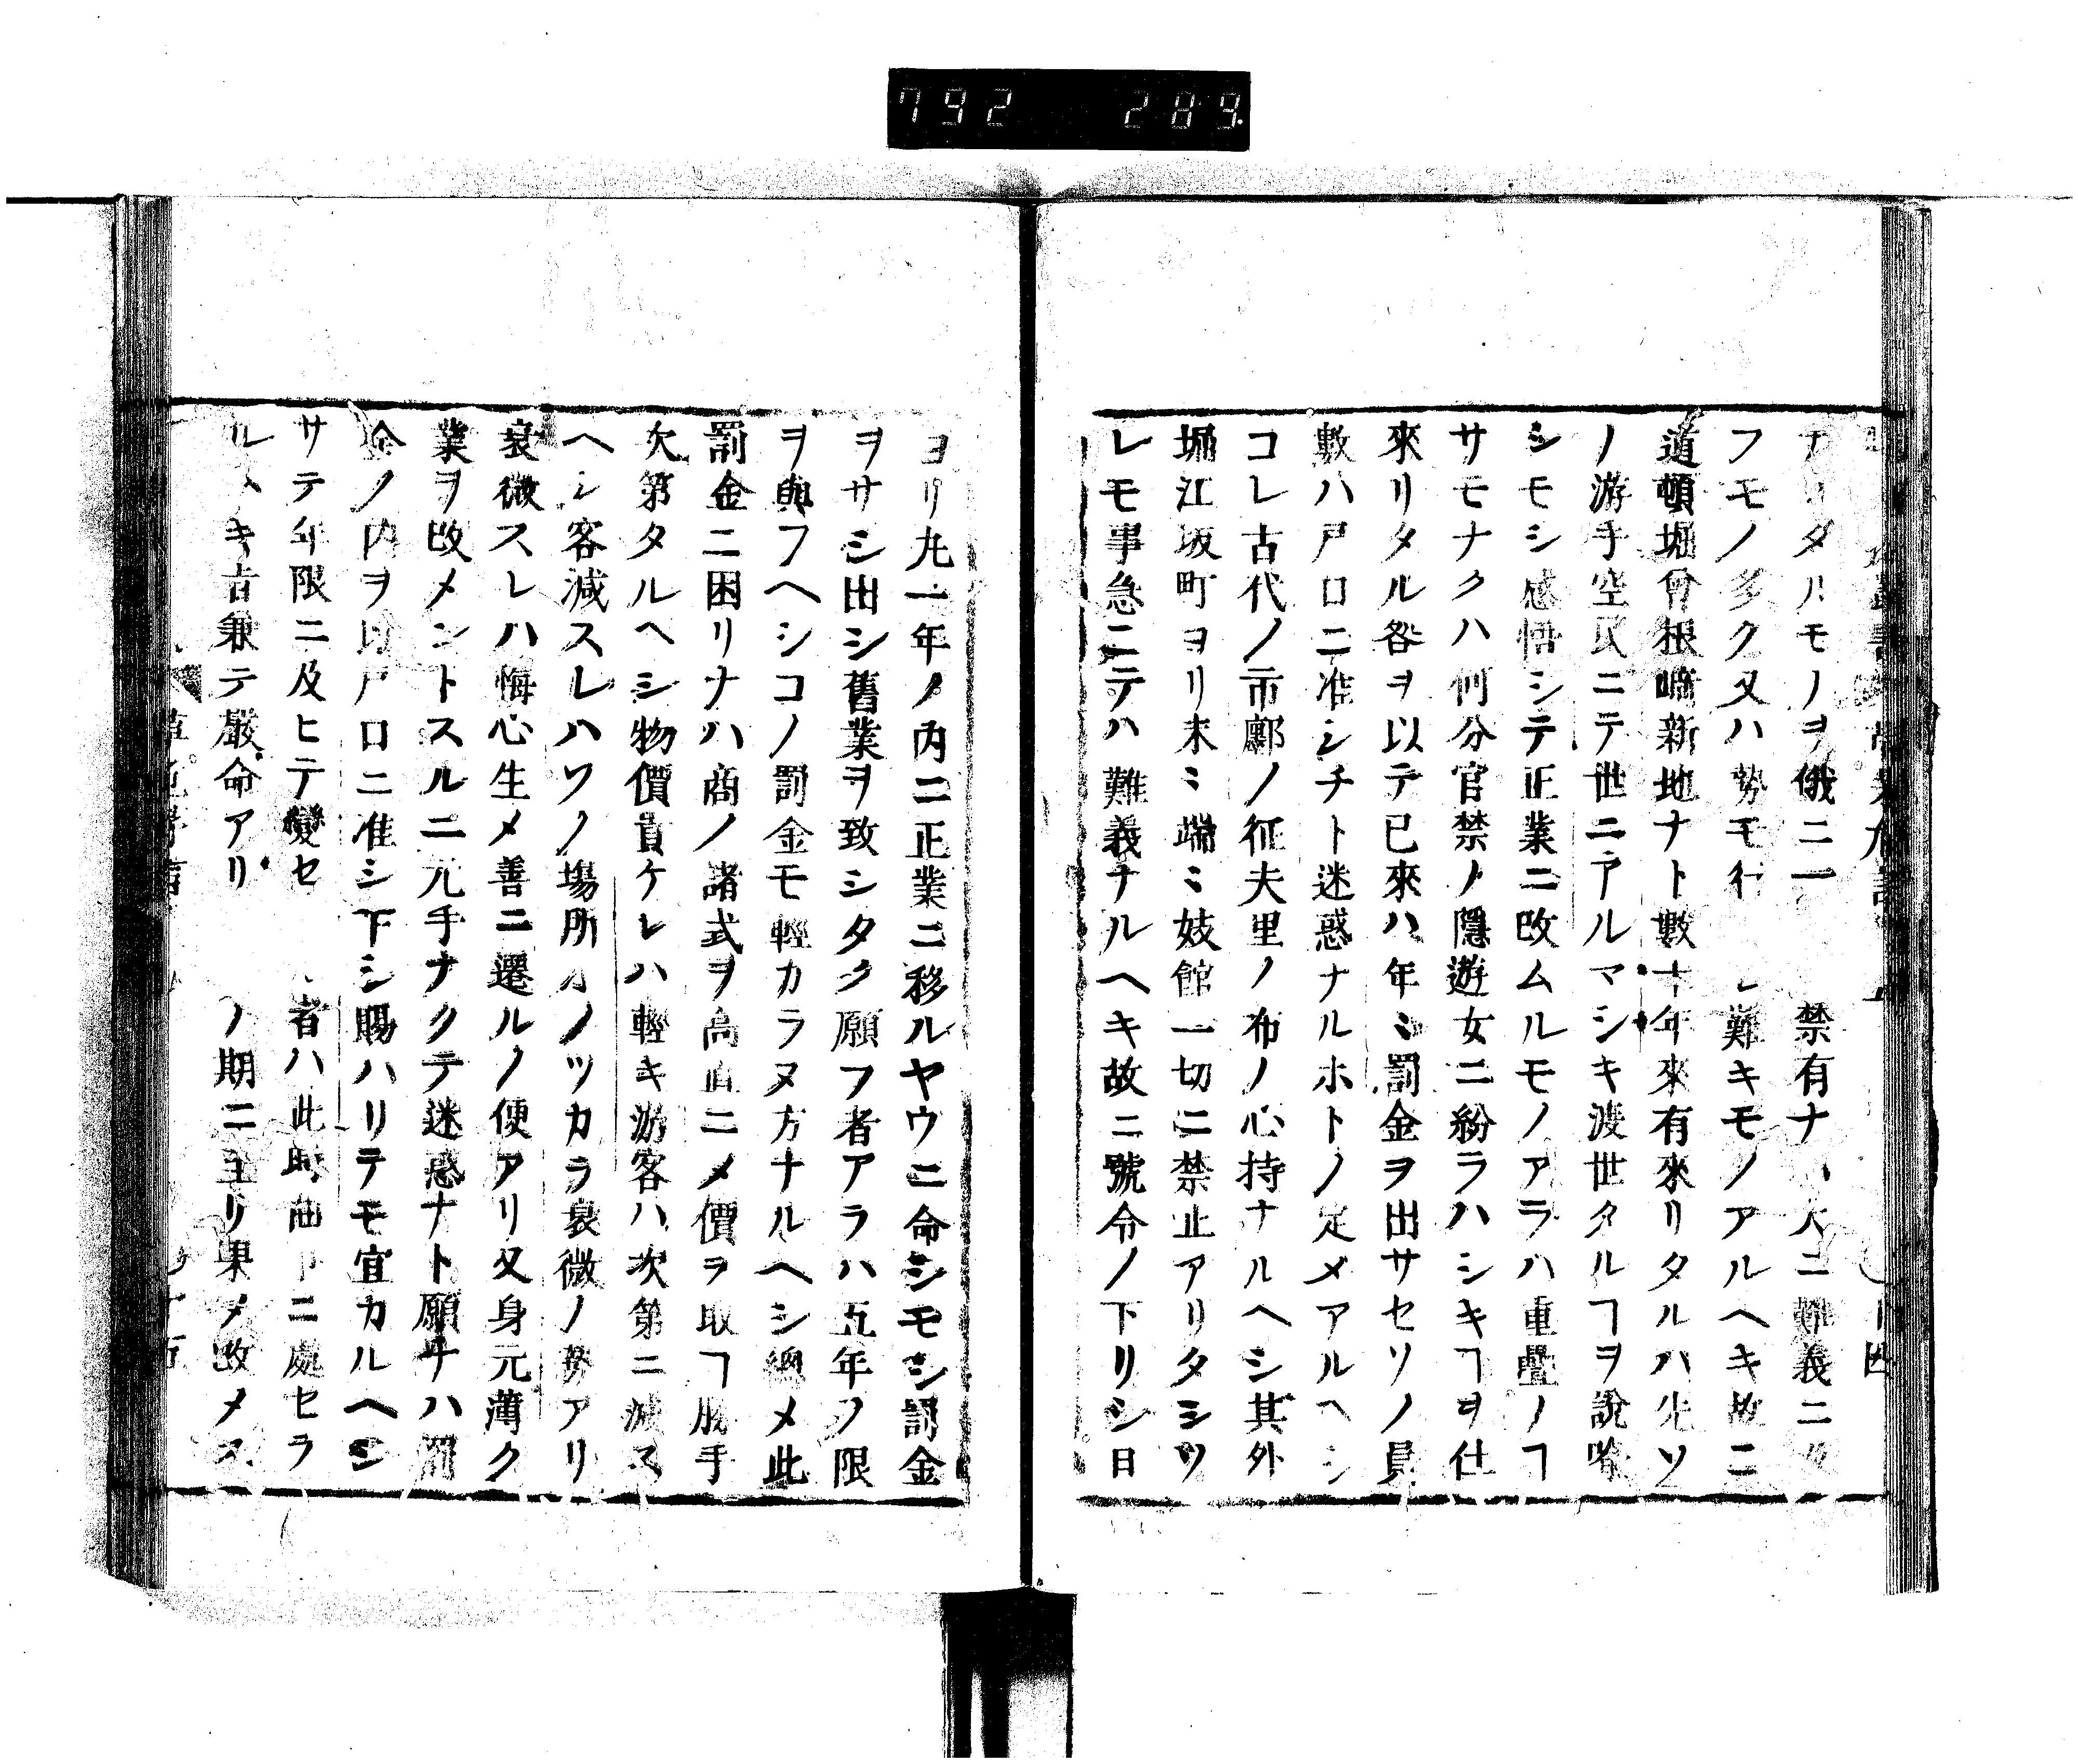 792 289
タルモノヲ俄ニ一 禁有ナハ大ニ難義ニ
フモノ多ク又ハ勢モ行 レ難キモノアルヘキ故ニ
道頓堀曾根崎新地ナト數十年來有來リタルハ先ソ
ノ游手空民ニテ世ニアルマシキ渡世タルヿヲ說喩
シモシ感悟シテ正業ニ改ムルモノアラハ重疊ノヿ
サモナクハ何分官禁ノ隱遊女ニ紛ラハシキヿヲ仕
來リタル咎ヲ以テ已來ハ年ミ罰金ヲ出サセソノ員
數ハ戸口ニ准シチト迷惑ナルホトノ定メアルヘシ
コレ古代ノ市鄽ノ征夫里ノ布ノ心持ナルヘシ其外
堀江坂町ヨリ末ミ端ミ妓館一切ニ禁止アリタシソ
レモ事急ニテハ難義ナルヘキ故ニ號令ノ下リシ日
ヨリ凡一年ノ内ニ正業ニ移ルヤウニ命シモシ罰金
ヲサシ出シ舊業ヲ致シタク願フ者アラハ五年ノ限
ヲ與フヘシコノ罰金モ輕カラヌ方ナルヘシ總メ此
罰金ニ困リナハ商ノ諸式ヲ高直ニメ價ヲ取ヿ勝手
次第タルヘシ物價貴ケレハ輕キ游客ハ次第ニ減ス
ヘシ客減スレハソノ場所オノツカラ衰微ノ勢アリ
衰微スレハ悔心生メ善ニ遷ルノ便アリ又身元薄ク
業ヲ改メントスルニ元手ナクテ迷惑ナト願ナハ罰
金ノ内ヲ以戸口ニ准シ下シ賜ハリテモ宜カルヘシ
サテ年限ニ及ヒテ變セ 者ハ此時 ニ處セラ
ルヘキ旨兼テ嚴命アリ ノ期ニ至リ果メ改メス